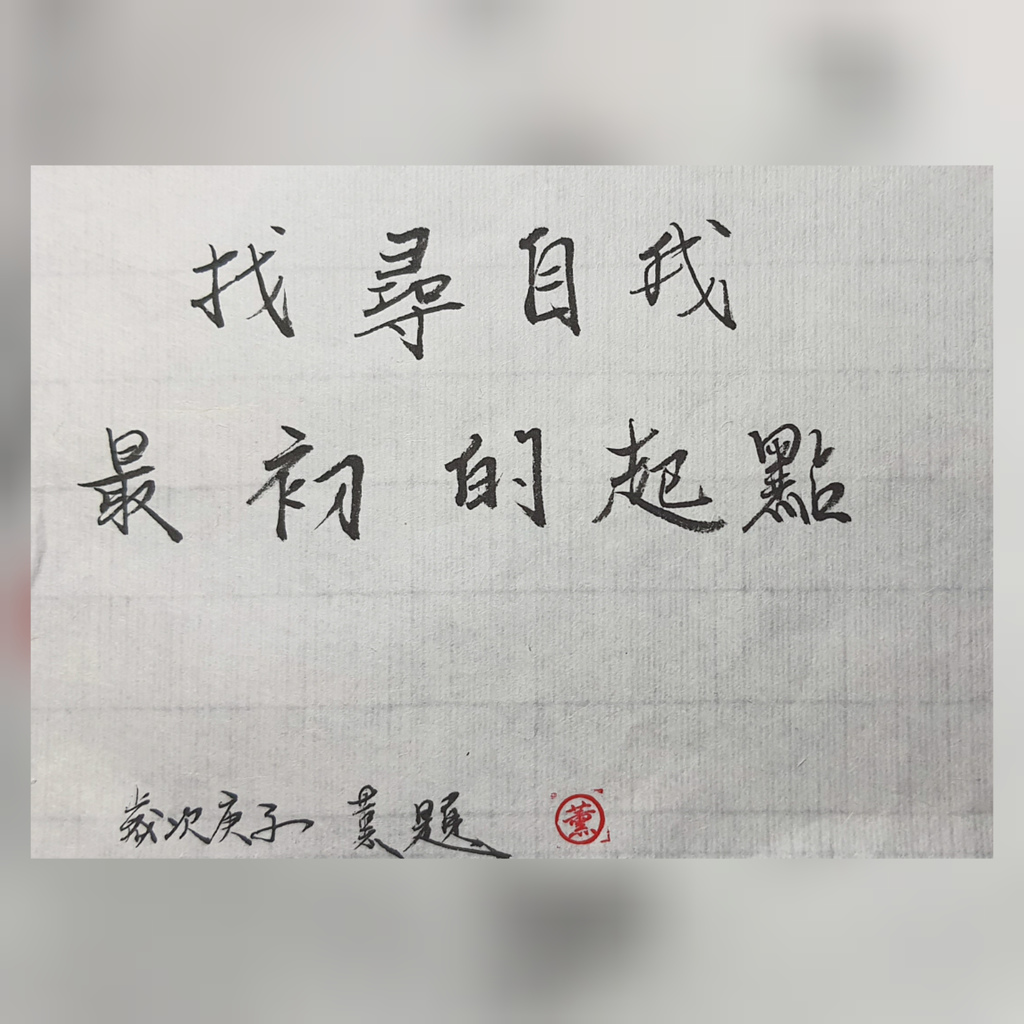 找尋自我
最初的起點
歲次庚子 薰題 薰